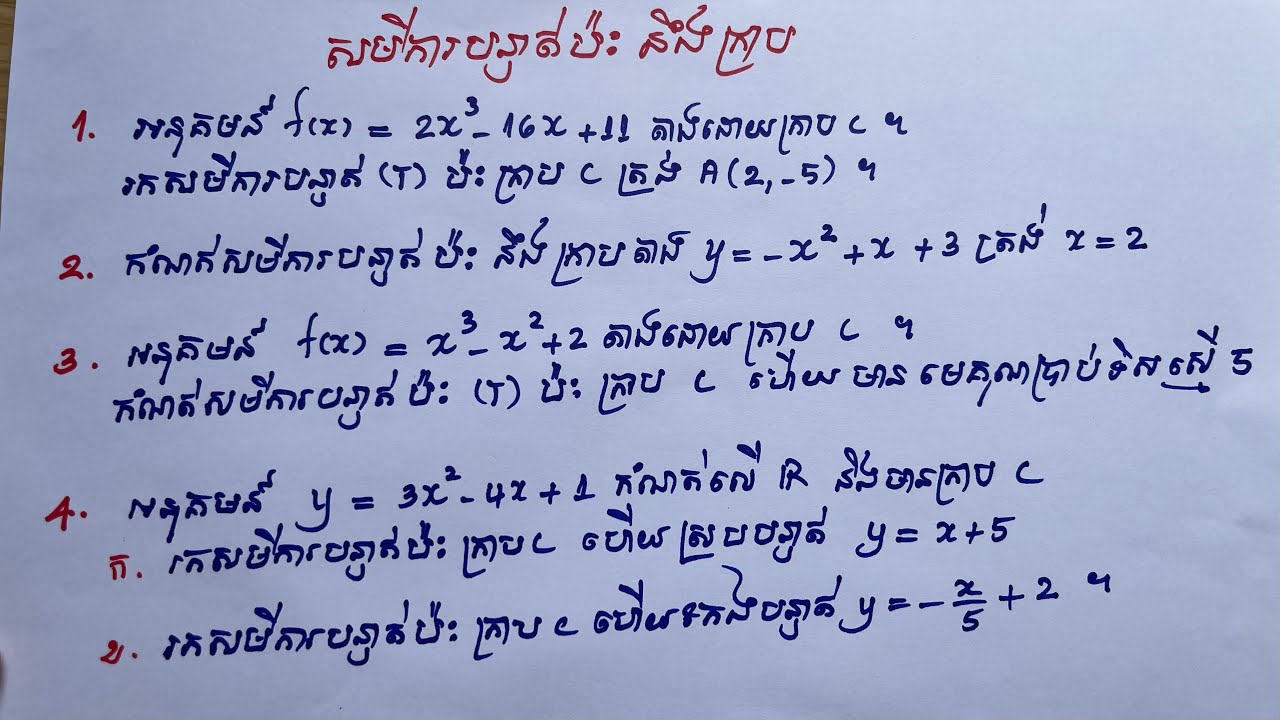 សមីការបន្ទាត់ប៉ះ នឹងក្រាប
1. អនុគមន៍ f(x) = 2x³ - 16x + 11 តាងដោយក្រាប C ។
រកសមីការបន្ទាត់ (T) ប៉ះ ក្រាប C ត្រង់ A(2, -5) ។
2. កំណត់សមីការបន្ទាត់ ប៉ះ នឹង ក្រាប តាង y = -x² + x + 3 ត្រង់ x = 2
3. អនុគមន៍ f(x) = x³ - x² + 2 តាងដោយក្រាប C ។
កំណត់សមីការបន្ទាត់ ប៉ះ (T) ប៉ះ ក្រាប C ហើយ មាន មេគុណប្រាប់ទិសស្មើ 5
4. អនុគមន៍ y = 3x² - 4x + 1 កំណត់លើ ℝ និងមានក្រាប C
ក. រកសមីការបន្ទាត់ប៉ះ ក្រាប C ហើយ ស្របបន្ទាត់ y = x + 5
ខ. រកសមីការបន្ទាត់ប៉ះ ក្រាប C ហើយកែងបន្ទាត់ y = -x/5 + 2 ។